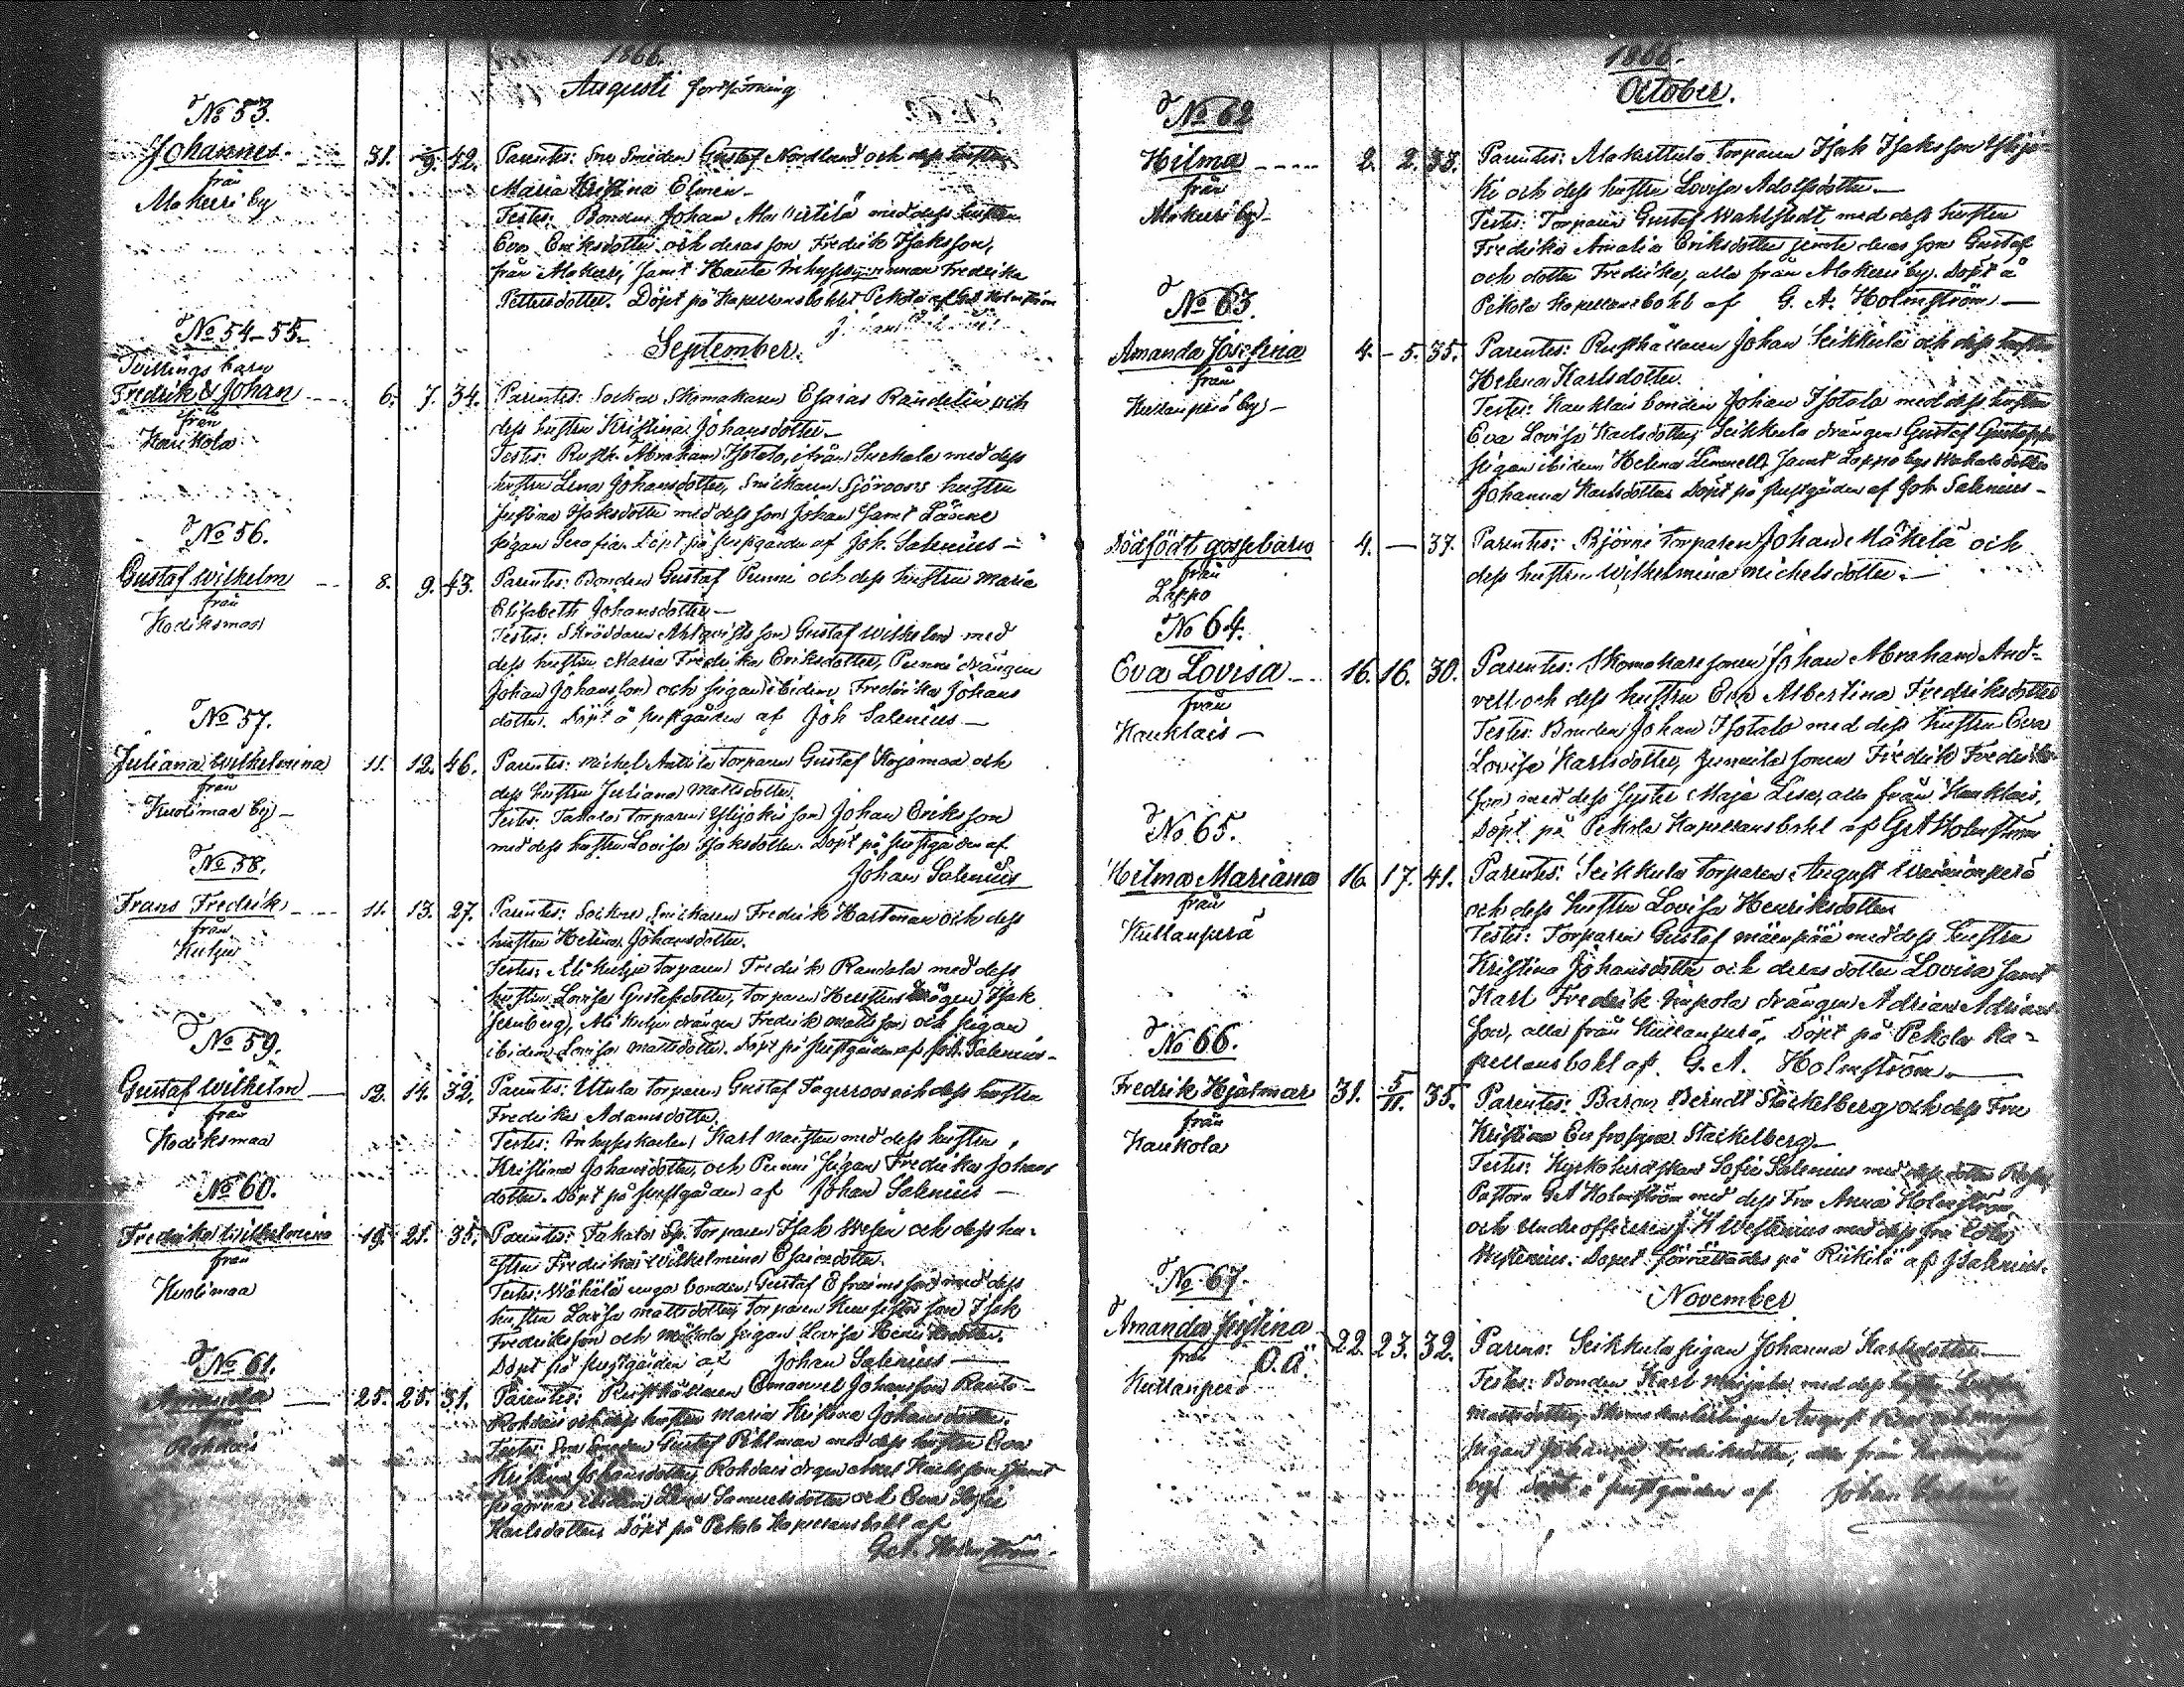 1866.
Augusti fortsättning
No 53.
Johannes 31. 9. 42.
från
Makeri by
Parentes: Sme Smeden Gustaf Nordlund och dess hustru
Maria Kristina Elmen
Testes: Bonden Johan med dess hustru
Eva Eriksdotter och deras son Fredrik Isaksson,
från Makeri, samt Fredrika
Pettersdotter. Döpt på Kapellansbohlet Pekola af G. A. Holmström
September.
No 54-55.
Tvillings barn
Fredrik & Johan 6. 7. 34.
från
Kaukola
Parentes: Socken Skomakaren Esaias Randelin och
dess hustru Kristina Johansdotter
Testes: Rusth. Abraham Isotalo, från med dess
hustru Lena Johansdotter, Snickaren Sjöroos's hustru
Justina Isaksdotter med dess son Johan samt
pigan Serafia. Döpt på prestgården af Joh. Salenius
No 56.
Gustaf Wilhelm 8. 9. 43.
från
Kodiksmaa
Parentes: Bonden Gustaf Punni och dess hustru Maria
Elisabeth Johansdotter
Testes: Skräddaren Ahlqvists son Gustaf Wilhelm med
dess hustru Maria Fredrika Eriksdotter, Punni drängen
Johan Johansson och pigan ibidem Fredrika Johans
dotter. Döpt å prestgården af Joh Salenius
No 57.
Juliana Wilhelmina 11. 12. 46.
från
Kuolimaa by
Parentes: Mickel Anttila torparen Gustaf Kojamaa och
dess hustru Juliana Mattsdotter.
Testes: Takalo torparen Ylijokis son Johan Eriksson
med dess hustru Lovisa Isaksdotter. Döpt på prestgården af
Johan Salenius
No 58.
Frans Fredrik 11. 13. 27.
från
Kulju
Parentes: Socken Snickaren Fredrik Hartman och dess
hustru Helena Johansdotter.
Testes: Ali Kulju torparen Fredrik Randala med dess
hustru Lovisa Gustafsdotter, torparen drängen Isak
Jernberg, Ali Kulju drängen Fredrik Mattsson och pigan
ibidem Lovisa Mattsdotter. Döpt på prestgården af Joh. Salenius
No 59.
Gustaf Wilhelm 12. 14. 32.
från
Kodiksmaa
Parentes: Utula torparen Gustaf Fagerroos och dess hustru
Fredrika Adamsdotter
Testes: Inhyses karlen Karl med dess hustru
Kristina Johansdotter, och Punni pigan Fredrika Johans
dotter. Döpt på prestgården af Johan Salenius
No 60.
Fredrika Wilhelmina 19. 21. 35.
från
Kuolimaa
Parentes: Takalo torparen Isak Wesin och dess hu-
stru Fredrika Wilhelmina Esaiedotter.
Testes: Mäkälä unga bonden Gustaf Efraimsson med dess
hustru Lovisa Mattsdotter, torparen son Isak
Fredriksson och pigan Lovisa
Döpt på prestgården af Johan Salenius
No 61.
Amanda 25. 25. 31.
från
Rohdais
Parentes: Rusthållaren Emanuel Johansson Rauto-
Rohdais och dess hustru Maria Kristina Johansdotter.
Testes: Sme Smeden Gustaf Pihlman med dess hustru Eva
Kristina Johansdotter, Rohdais drgn Axel Karlsson samt
pigorna ibidem Lena Samuelsdotter och Eva Sofie
Karlsdotter. Döpt på Pekola Kapellansbohl af
G. A. Holmström
1866.
October.
No 62
Hilma 2. 2. 38.
från
Makeri by
Parentes: Makerttula torparen Isak Isaksson Ylijo-
ki och dess hustru Lovisa Adolfsdotter
Testes: Torparen Gustaf Wahlstedt med dess hustru
Fredrika Amalia Eriksdotter jemte deras son Gustaf
och dotter Fredrika, alla från Makeri by. Döpt å
Pekola Kapellansbohl af G. A. Holmström
No 63.
Amanda Josefina 4. 5. 35.
från
Kullanperä by
Parentes: Rusthållaren Johan Seikkula och dess hustru
Helena Karlsdotter.
Testes: Kauklais bonden Johan Isotalo med dess hustru
Eva Lovisa Karlsdotter, Seikkula drängen Gustaf Gustafsson
pigan ibidem Helena samt Lappo bys dotter
Johanna Karlsdotter Döpt på prestgården af Joh Salenius
Dödfödt gossebarn 4. — 37.
från
Lappo
Parentes: Björni torparen Johan Mäkelä och
dess hustru Wilhelmina Michelsdotter.
No 64.
Eva Lovisa 16. 16. 30.
från
Kauklais
Parentes: Skomakaresonen Johan Abraham And-
vell och dess hustru Eva Albertina Fredriksdotter
Testes: Bonden Johan Isotalo med dess hustru Eva
Lovisa Karlsdotter, sonen Fredrik Fredriks
son med dess syster Maja Lisa, alla från Kauklais.
Döpt på Pekola Kapellansbohl af G A Holmström
No 65.
Hilma Mariana 16. 17. 41.
från
Kullanperä
Parentes: Seikkula torparen August
och dess hustru Lovisa Henriksdotter
Testes: Torparen Gustaf Mäenpää med dess hustru
Kristina Johansdotter och deras dotter Lovisa samt
Karl Fredrik drängen Adrian Adrians
son, alla från Kullanperä. Döpt på Pekola Ka-
pellansbohl af G. A. Holmström
No 66.
Fredrik Hjalmar 31. 5/11. 35.
från
Kaukola
Parentes: Baron Berndt Stackelberg och dess Fru
Kristina Eufrosyne Stackelberg
Testes: Kyrkoherdskan Sofie Salenius med dess dotter
Pastorn G A Holmström med dess Fru Anna Holmström
och Underofficeren Westenius med dess fru
Westenius. Dopet förrättades på Riikilä af J Salenius.
November
No 67.
Amanda Justina 22. 23. 32.
från O. Ä.
Kullanperä
Parens: Seikkula pigan Johanna Karlsdotter
Testes: Bonden Karl med dess hustru
Mattsdotter, Skomakarlärlingen August
pigan Johanna Fredriksdotter, alla från
by. Döpt å prestgården af Johan Salenius